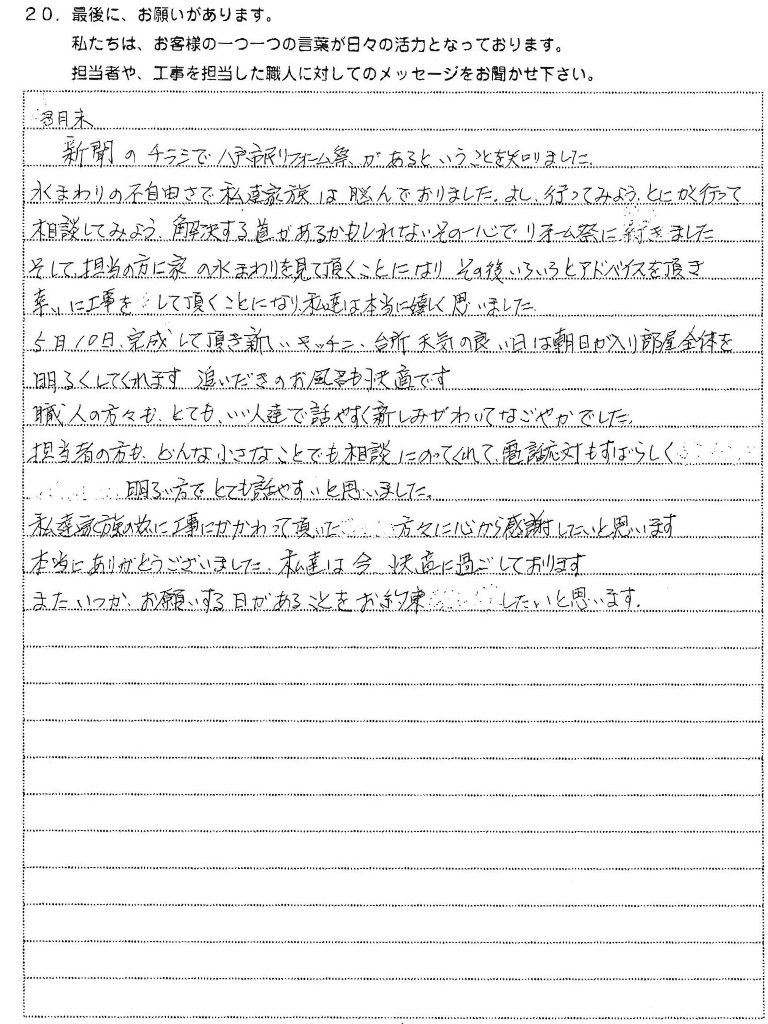 20. 最後に、お願いがあります。
私たちは、お客様の一つ一つの言葉が日々の活力となっております。
担当者や、工事を担当した職人に対してのメッセージをお聞かせ下さい。
3月末
新聞のチラシで八戸市民リフォーム祭、があるということを知りました。
水まわりの不自由さで私達家族は悩んでおりました。よし、行ってみよう、とにかく行って
相談してみよう、解決する道があるかもしれないその一心でリフォーム祭に行きました
そして、担当の方に家の水まわりを見て頂くことになり その後いろいろとアドバイスを頂き
幸いに工事をして頂くことになり、私達は本当に嬉しく思いました。
5月10日、完成して頂き新しいキッチン、台所 天気の良い日は朝日が入り部屋全体を
明るくしてくれます 追いだきのお風呂も快適です
職人の方々も、とても、いい人達で話やすく親しみがわいてなごやかでした。
担当者の方も、どんな小さなことでも相談にのってくれて、電話応対もすばらしく
明るい方でとても話やすいと思いました。
私達家族の為に工事にかかわって頂いた 方々に心から感謝したいと思います
本当にありがとうございました、私達は今、快適に過ごしております
またいつか、お願いする日があることをお約束 したいと思います。